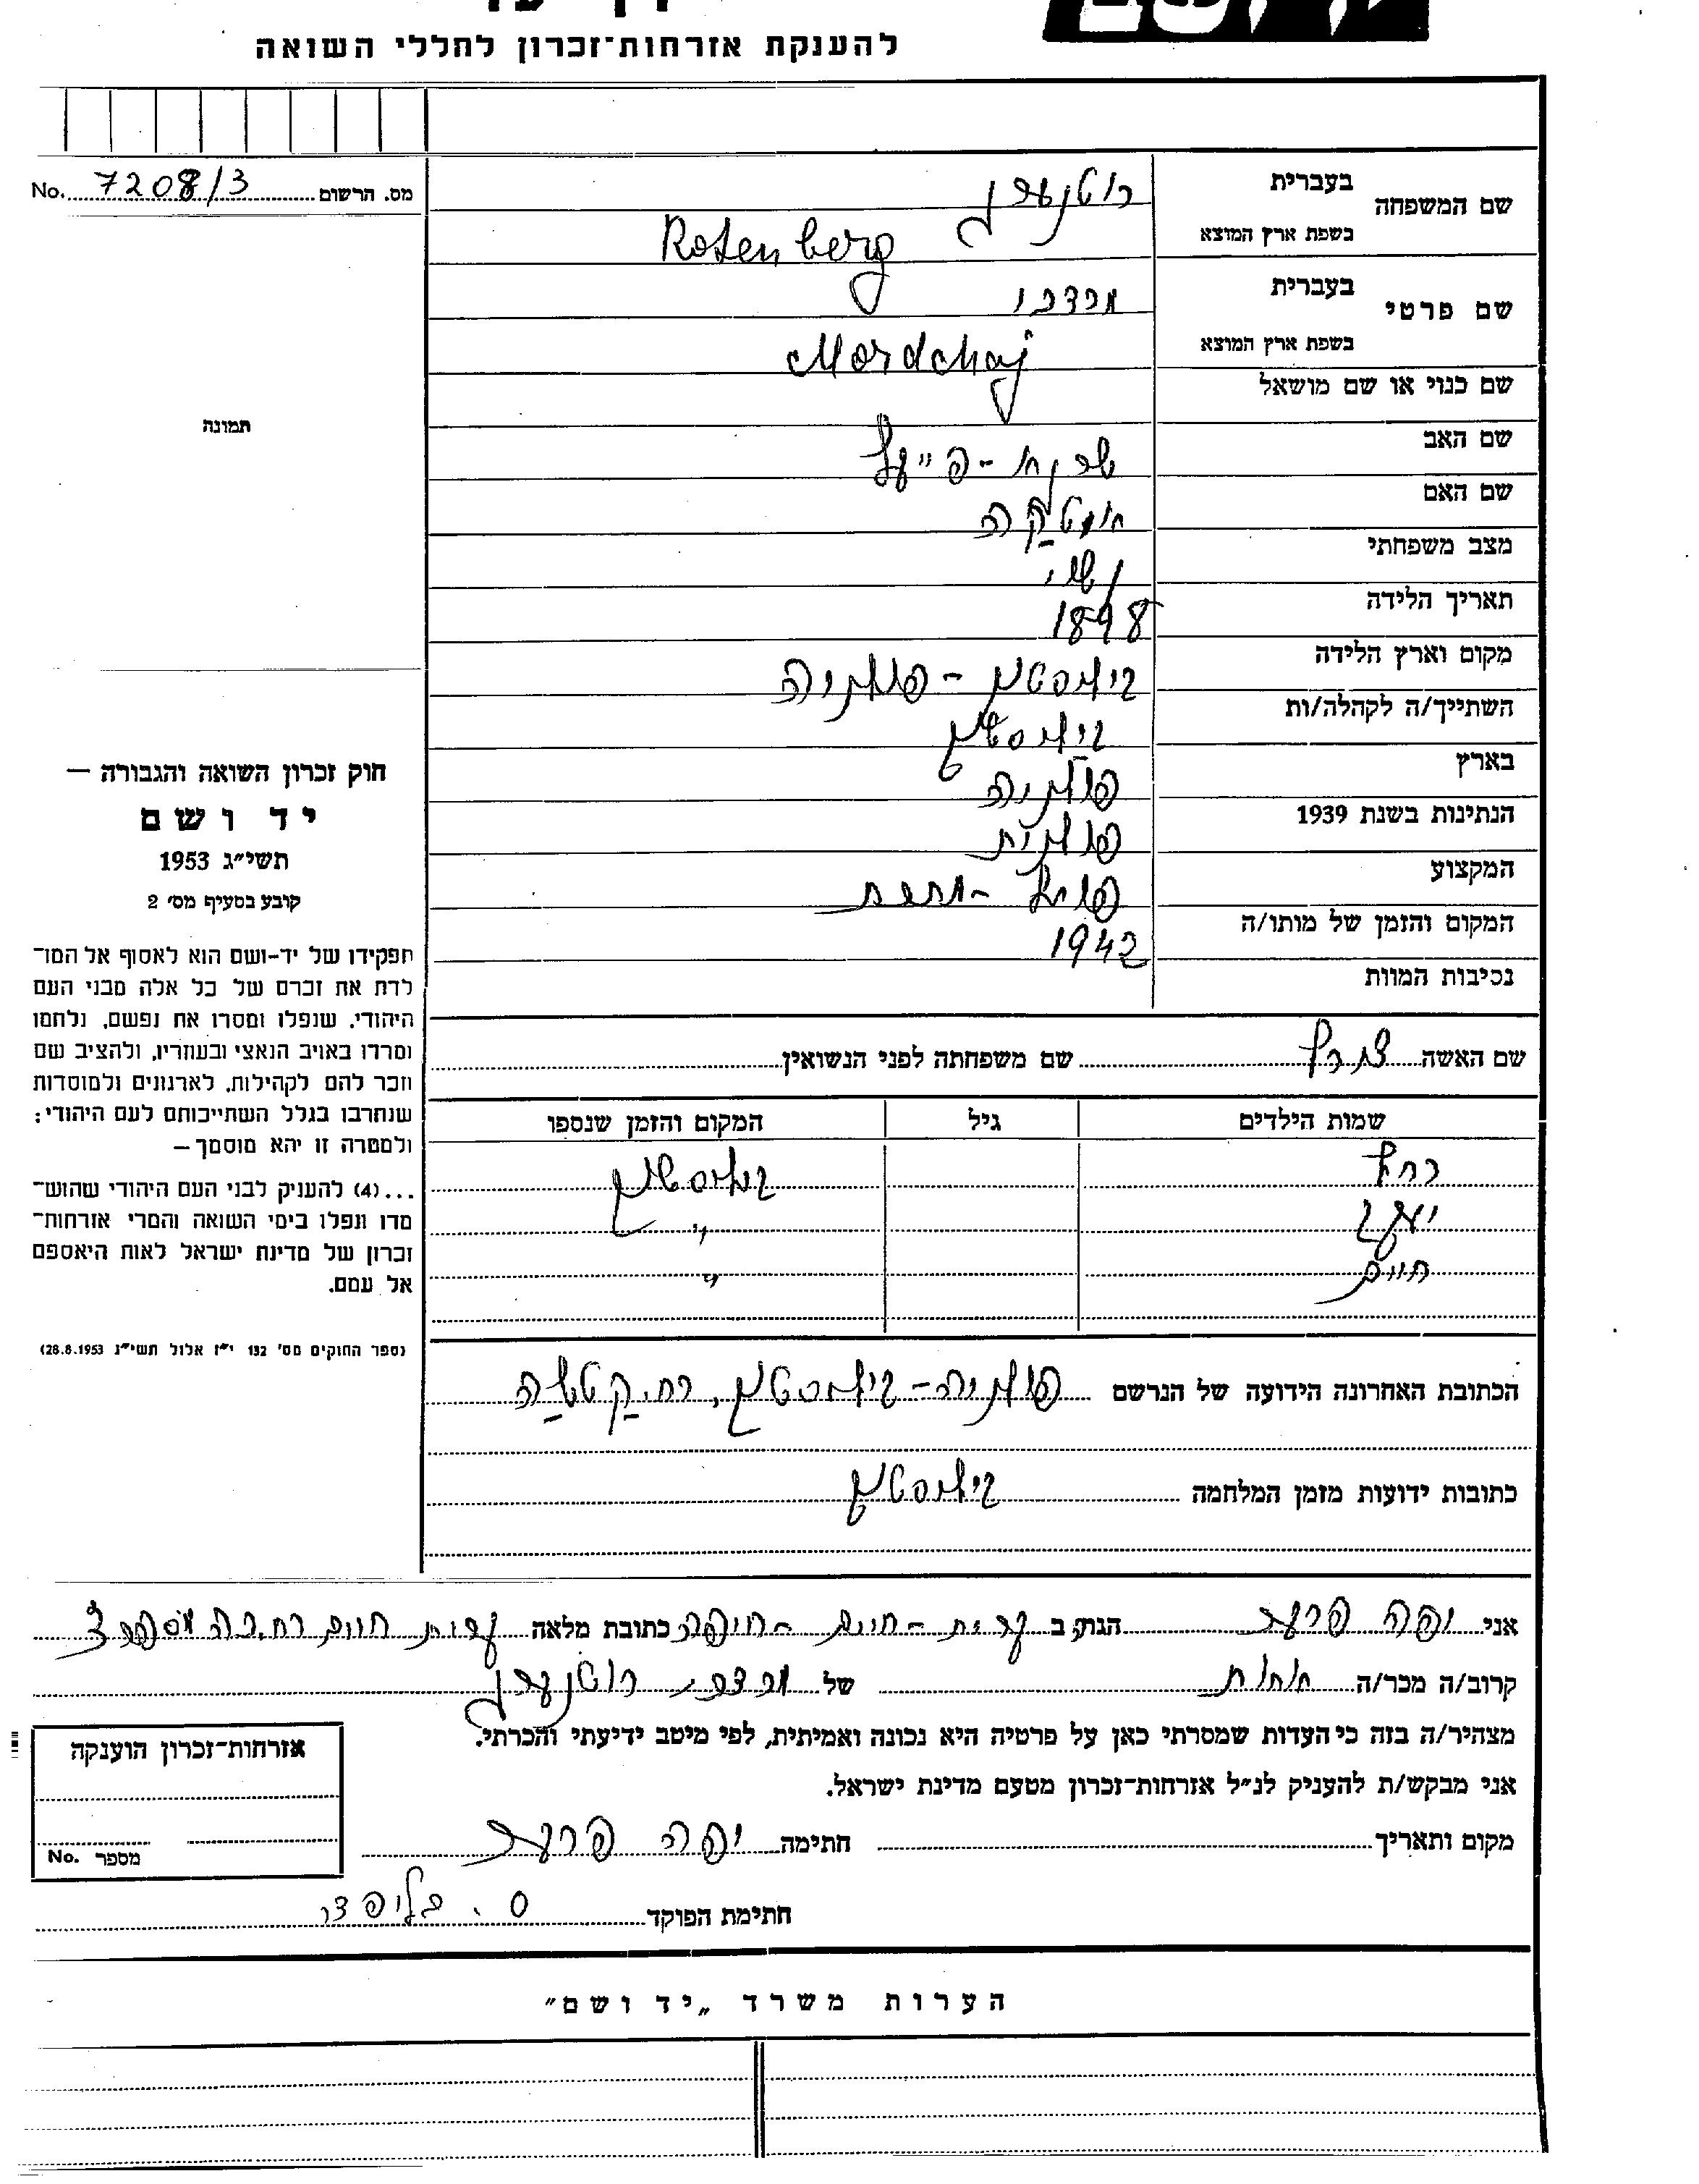 דף עד
להענקת אזרחות־זכרון לחללי השואה
מס. הרשום 7208/3 No.
שם המשפחה
בעברית
רוטנברג
בשפת ארץ המוצא
Rotenberg
שם פרטי
בעברית
מרדכי
בשפת ארץ המוצא
Mordchaj
שם כנוי או שם מושאל
שם האב
שם האם
מצב משפחתי נשוי
תאריך הלידה 1898
מקום וארץ הלידה ביאליסטוק - פולניה
השתייך/ה לקהלה/ות ביאליסטוק
בארץ פולניה
הנתינות בשנת 1939 פולנית
המקצוע פועל -
המקום והזמן של מותו/ה 1942
נסיבות המוות
תמונה
חוק זכרון השואה והגבורה –
יד ושם
תשי״ג 1953
קובע בסעיף מס׳ 2
תפקידו של יד-ושם הוא לאסוף אל המו־
לדת את זכרם של כל אלה מבני העם
היהודי, שנפלו ומסרו את נפשם, נלחמו
ומרדו באויב הנאצי ובעוזריו, ולהציב שם
וזכר להם לקהילות, לארגונים ולמוסדות
שנחרבו בגלל השתייכותם לעם היהודי;
ולמטרה זו יהא מוסמך–
...(4) להעניק לבני העם היהודי שהוש־
מדו ונפלו בימי השואה והמרי אזרחות־
זכרון של מדינת ישראל לאות היאספם
אל עמם.
(ספר החוקים מס׳ 132 י״ז אלול תשי״ג 28.8.1953)
שם האשה שם משפחתה לפני הנשואין
שמות הילדים גיל המקום והזמן שנספו
רחל ביאליסטוק
יעקב "
חיים "
הכתובת האחרונה הידועה של הנרשם פולניה - ביאליסטוק, רח'
כתובות ידועות מזמן המלחמה ביאליסטוק
אני יפה הגר/ה ב קרית - חיים - חיפה כתובת מלאה קרית חיים רח'
קרוב/ה מכר/ה אחות של מרדכי רוטנברג
מצהיר/ה בזה כי העדות שמסרתי כאן על פרטיה היא נכונה ואמיתית, לפי מיטב ידיעתי והכרתי.
אני מבקש/ת להעניק לנ״ל אזרחות־זכרון מטעם מדינת ישראל.
מקום ותאריך חתימה יפה
חתימת הפוקד
אזרחות־זכרון הוענקה
מספר No.
הערות משרד „יד ושם״